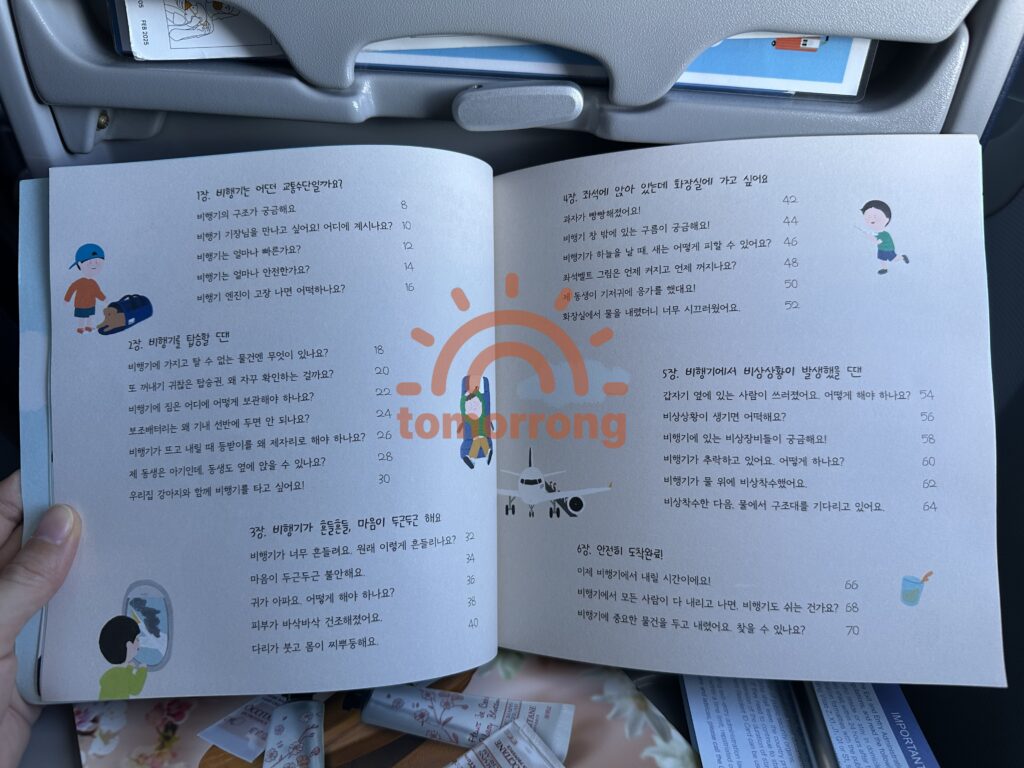 FEB 2025
1장. 비행기는 어떤 교통수단일까요?
비행기의 구조가 궁금해요 8
비행기 기장님을 만나고 싶어요! 어디에 계시나요? 10
비행기는 얼마나 빠른가요? 12
비행기는 얼마나 안전한가요? 14
비행기 엔진이 고장 나면 어떡하나요? 16
2장. 비행기를 탑승할 땐
비행기에 가지고 탈 수 없는 물건엔 무엇이 있나요? 18
또 꺼내기 귀찮은 탑승권, 왜 자꾸 확인하는 걸까요? 20
비행기에 짐은 어디에 어떻게 보관해야 하나요? 22
보조배터리는 왜 기내 선반에 두면 안 되나요? 24
비행기가 뜨고 내릴 때 등받이를 왜 제자리로 해야 하나요? 26
제 동생은 아기인데, 동생도 옆에 앉을 수 있나요? 28
우리집 강아지와 함께 비행기를 타고 싶어요! 30
3장. 비행기가 흔들흔들, 마음이 두근두근 해요
비행기가 너무 흔들려요. 원래 이렇게 흔들리나요? 32
마음이 두근두근 불안해요. 34
귀가 아파요. 어떻게 해야 하나요? 36
피부가 바삭바삭 건조해졌어요. 38
다리가 붓고 몸이 찌뿌둥해요. 40
4장. 좌석에 앉아 있는데 화장실에 가고 싶어요
과자가 빵빵해졌어요! 42
비행기 창 밖에 있는 구름이 궁금해요! 44
비행기가 하늘을 날 때, 새는 어떻게 피할 수 있어요? 46
좌석벨트 그림은 언제 켜지고 언제 꺼지나요? 48
제 동생이 기저귀에 응가를 했대요! 50
화장실에서 물을 내렸더니 너무 시끄러웠어요. 52
5장. 비행기에서 비상상황이 발생했을 땐
갑자기 옆에 있는 사람이 쓰러졌어요. 어떻게 해야 하나요? 54
비상상황이 생기면 어떡해요? 56
비행기에 있는 비상장비들이 궁금해요! 58
비행기가 추락하고 있어요. 어떻게 하나요? 60
비행기가 물 위에 비상착수했어요. 62
비상착수한 다음, 물에서 구조대를 기다리고 있어요. 64
6장. 안전히 도착완료!
이제 비행기에서 내릴 시간이에요! 66
비행기에서 모든 사람이 다 내리고 나면, 비행기도 쉬는 건가요? 68
비행기에 중요한 물건을 두고 내렸어요. 찾을 수 있나요? 70
tomorrong
IMPORTANT